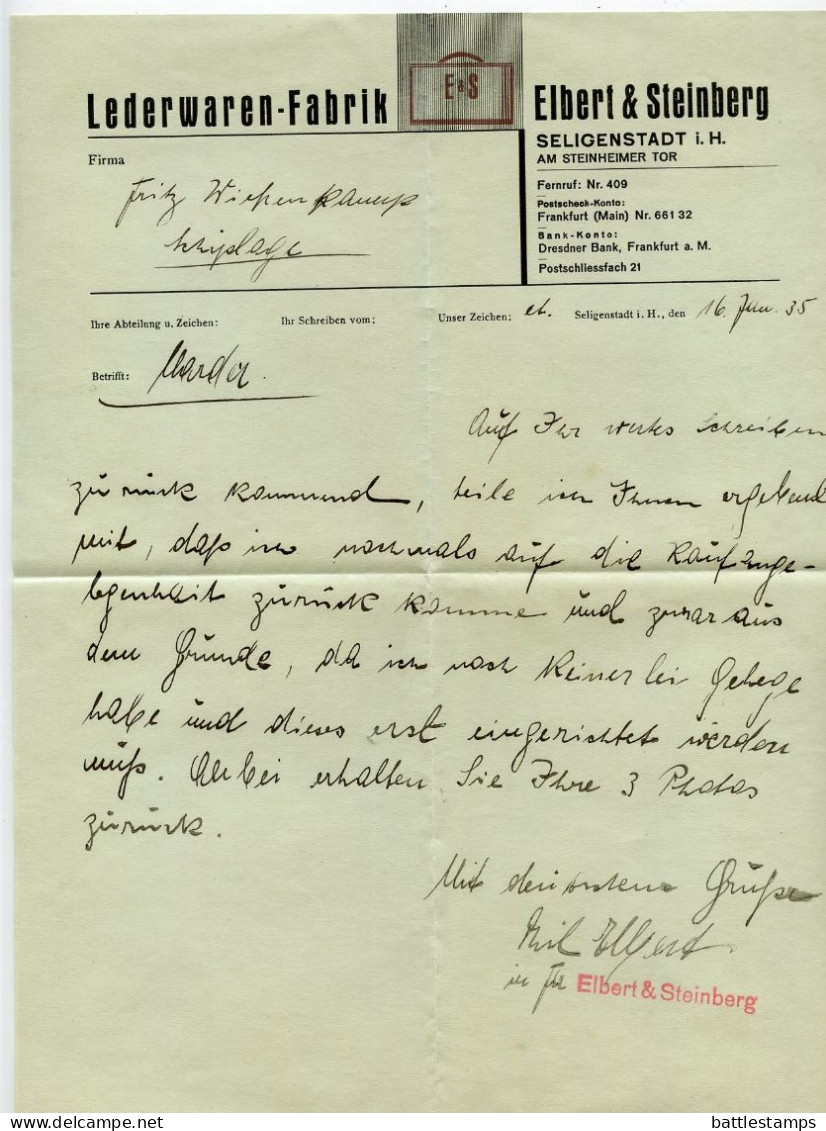 Lederwaren-Fabrik
E&S
Elbert & Steinberg
SELIGENSTADT i. H.
AM STEINHEIMER TOR
Fernruf: Nr. 409
Postscheck-Konto:
Frankfurt (Main) Nr. 661 32
Bank-Konto:
Dresdner Bank, Frankfurt a. M.
Postschliessfach 21
Firma
Fritz Wiesenkamp
Ihre Abteilung u. Zeichen:
Ihr Schreiben vom:
Unser Zeichen: eb.
Seligenstadt i. H., den 16. 35
Betrifft: Marder.
Auf Ihr wertes Schreiben
zurück kommend, teile ich Ihnen ergebend
mit, daß ich nochmals auf die Kaufange-
legenheit zurück komme und zwar aus
dem Grunde, da ich noch keinerlei Gehege
habe und dieses erst eingerichtet werden
muß. Anbei erhalten Sie Ihre 3 Photos
zurück.
Mit deutschem Gruße
Elbert
in Fa Elbert & Steinberg
battlestamps